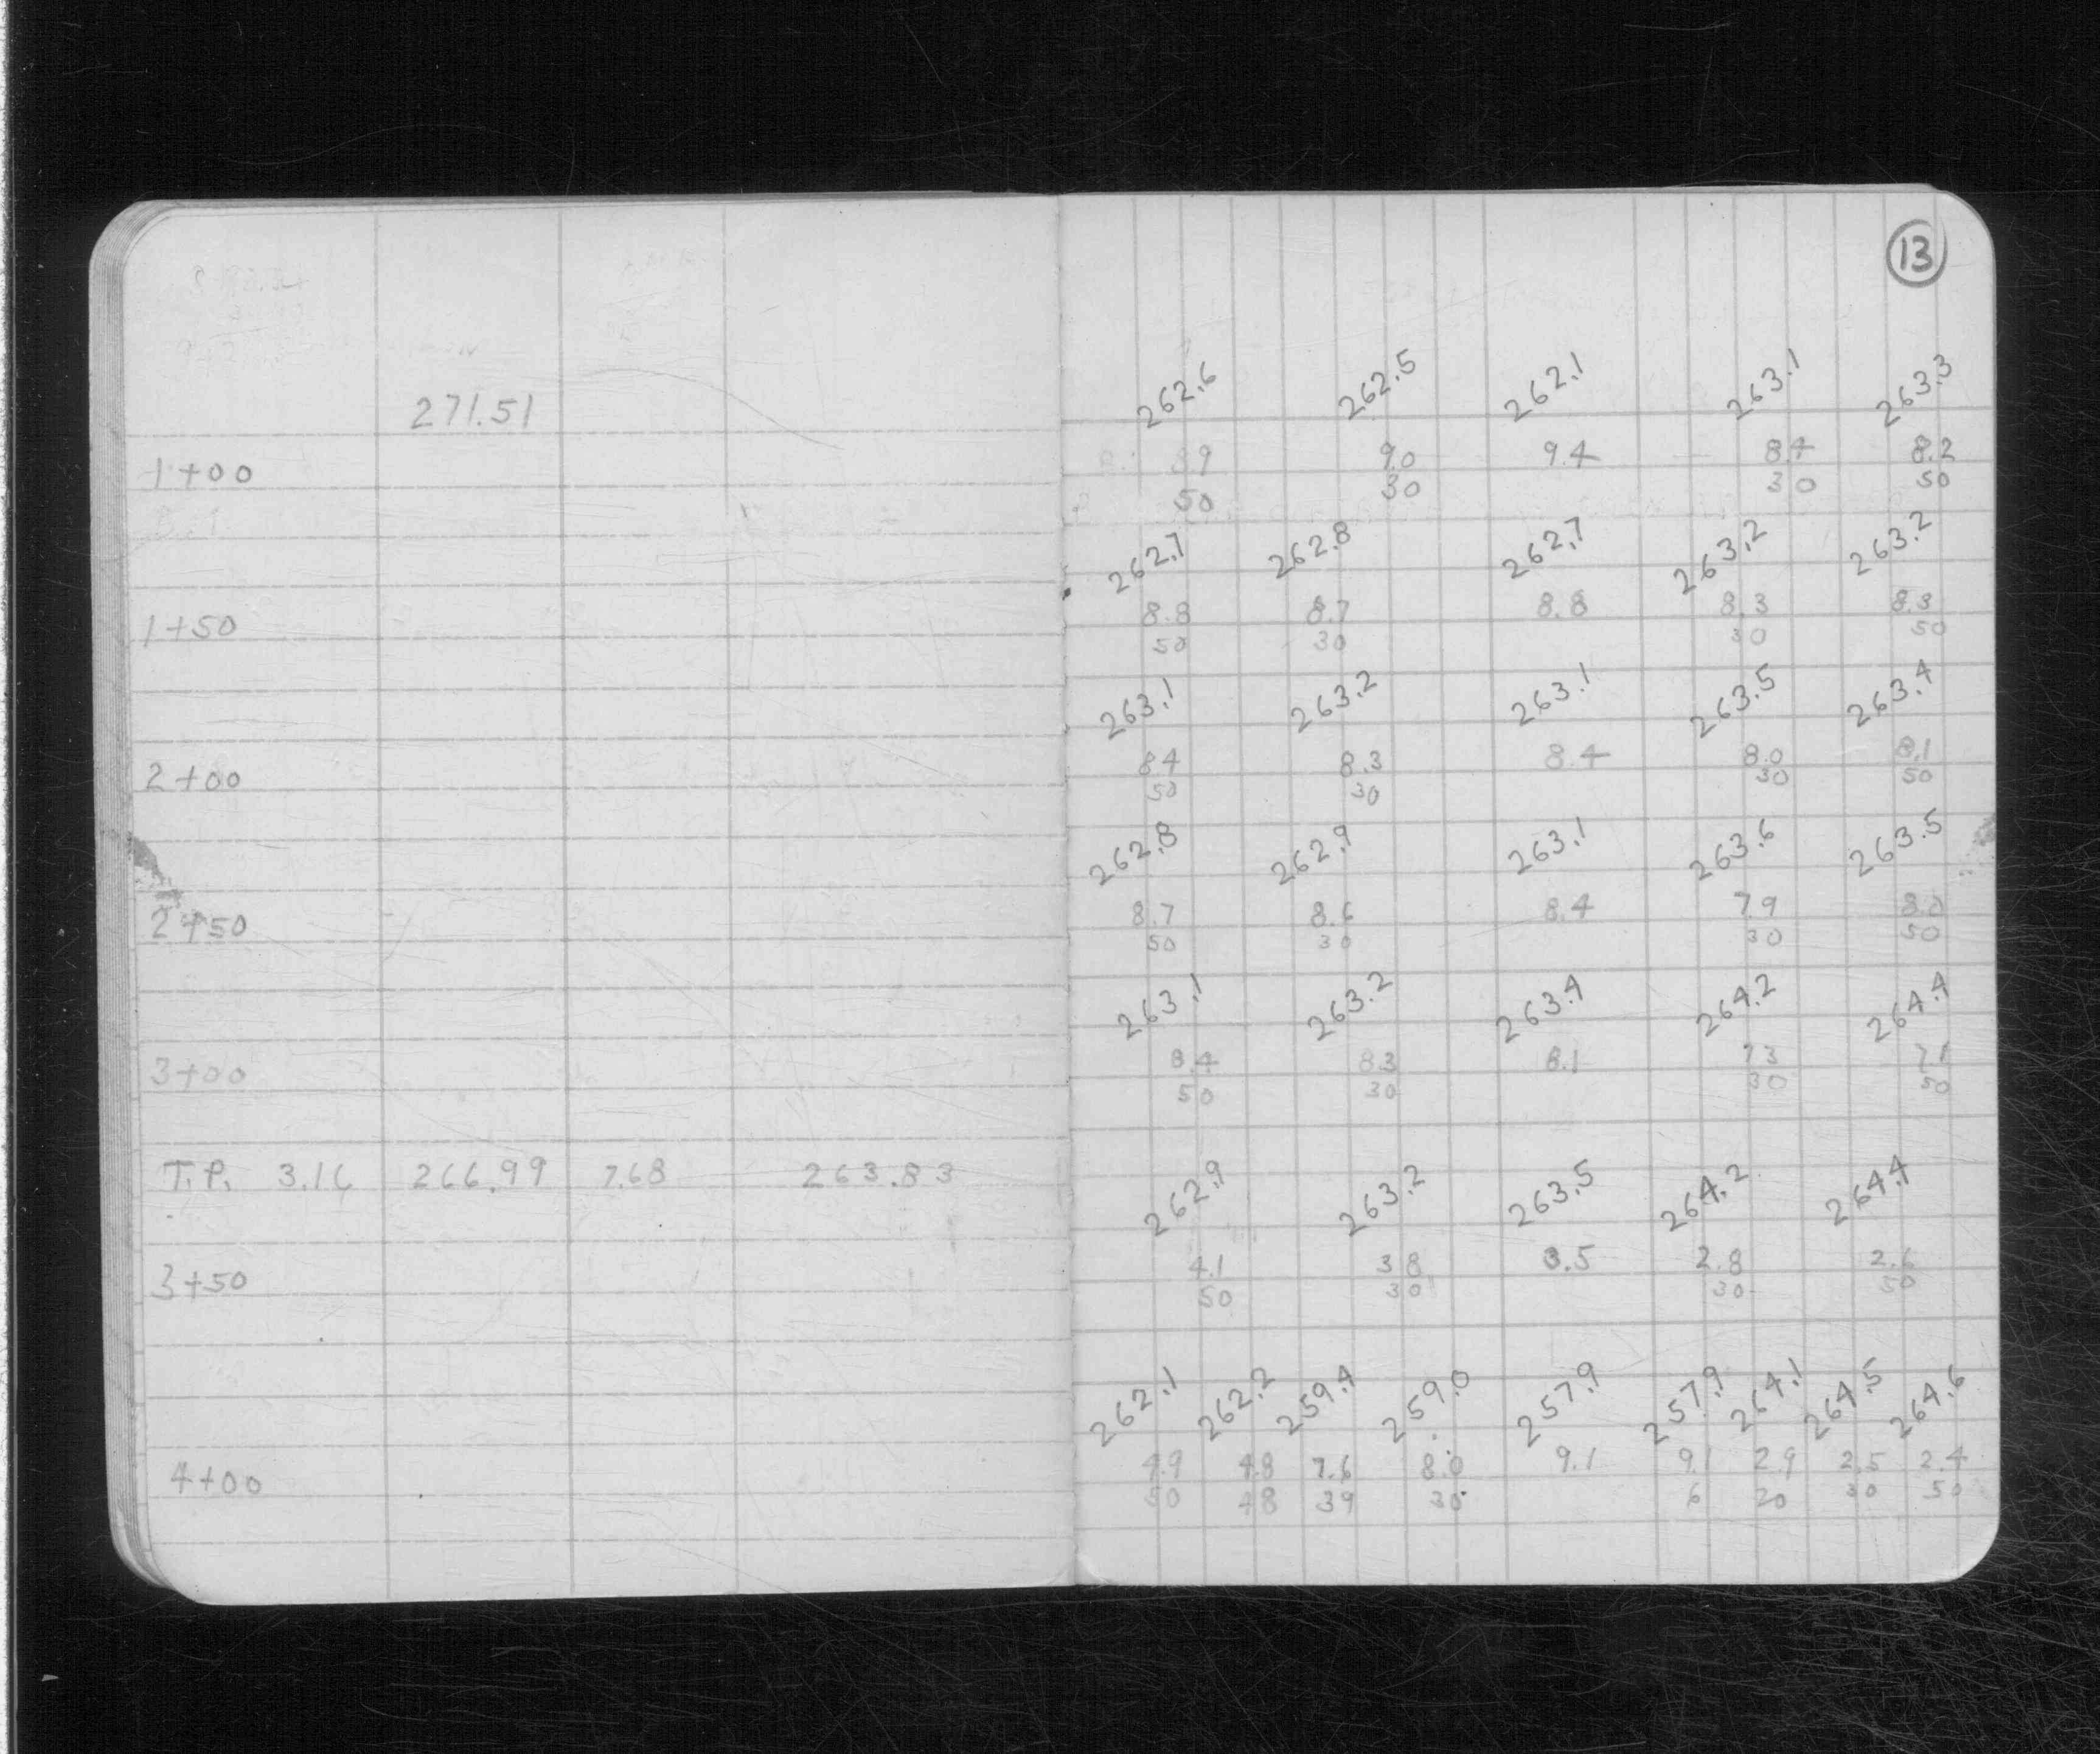 13
271.51
262.6 262.5 262.1 263.1 263.3
1+00 8.9 9.0 9.4 8.4 8.2
50 30 30 50
262.7 262.8 262.7 263.2 263.2
1+50 8.8 8.7 8.8 8.3 8.3
50 30 30 50
263.1 263.2 263.1 263.5 263.4
2+00 8.4 8.3 8.4 8.0 8.1
50 30 30 50
262.8 262.9 263.1 263.6 263.5
2+50 8.7 8.6 8.4 7.9 8.0
50 30 30 50
263.1 263.2 263.4 264.2 264.4
3+00 8.4 8.3 8.1 7.3 7.1
50 30 30 50
T.P. 3.16 266.99 7.68 263.83
262.9 263.2 263.5 264.2 264.4
3+50 4.1 3.8 3.5 2.8 2.6
50 30 30 50
262.1 262.2 259.4 259.0 257.9 257.9 264.1 264.5 264.6
4+00 4.9 4.8 7.6 8.0 9.1 9.1 2.9 2.5 2.4
50 48 39 30 6 20 30 50